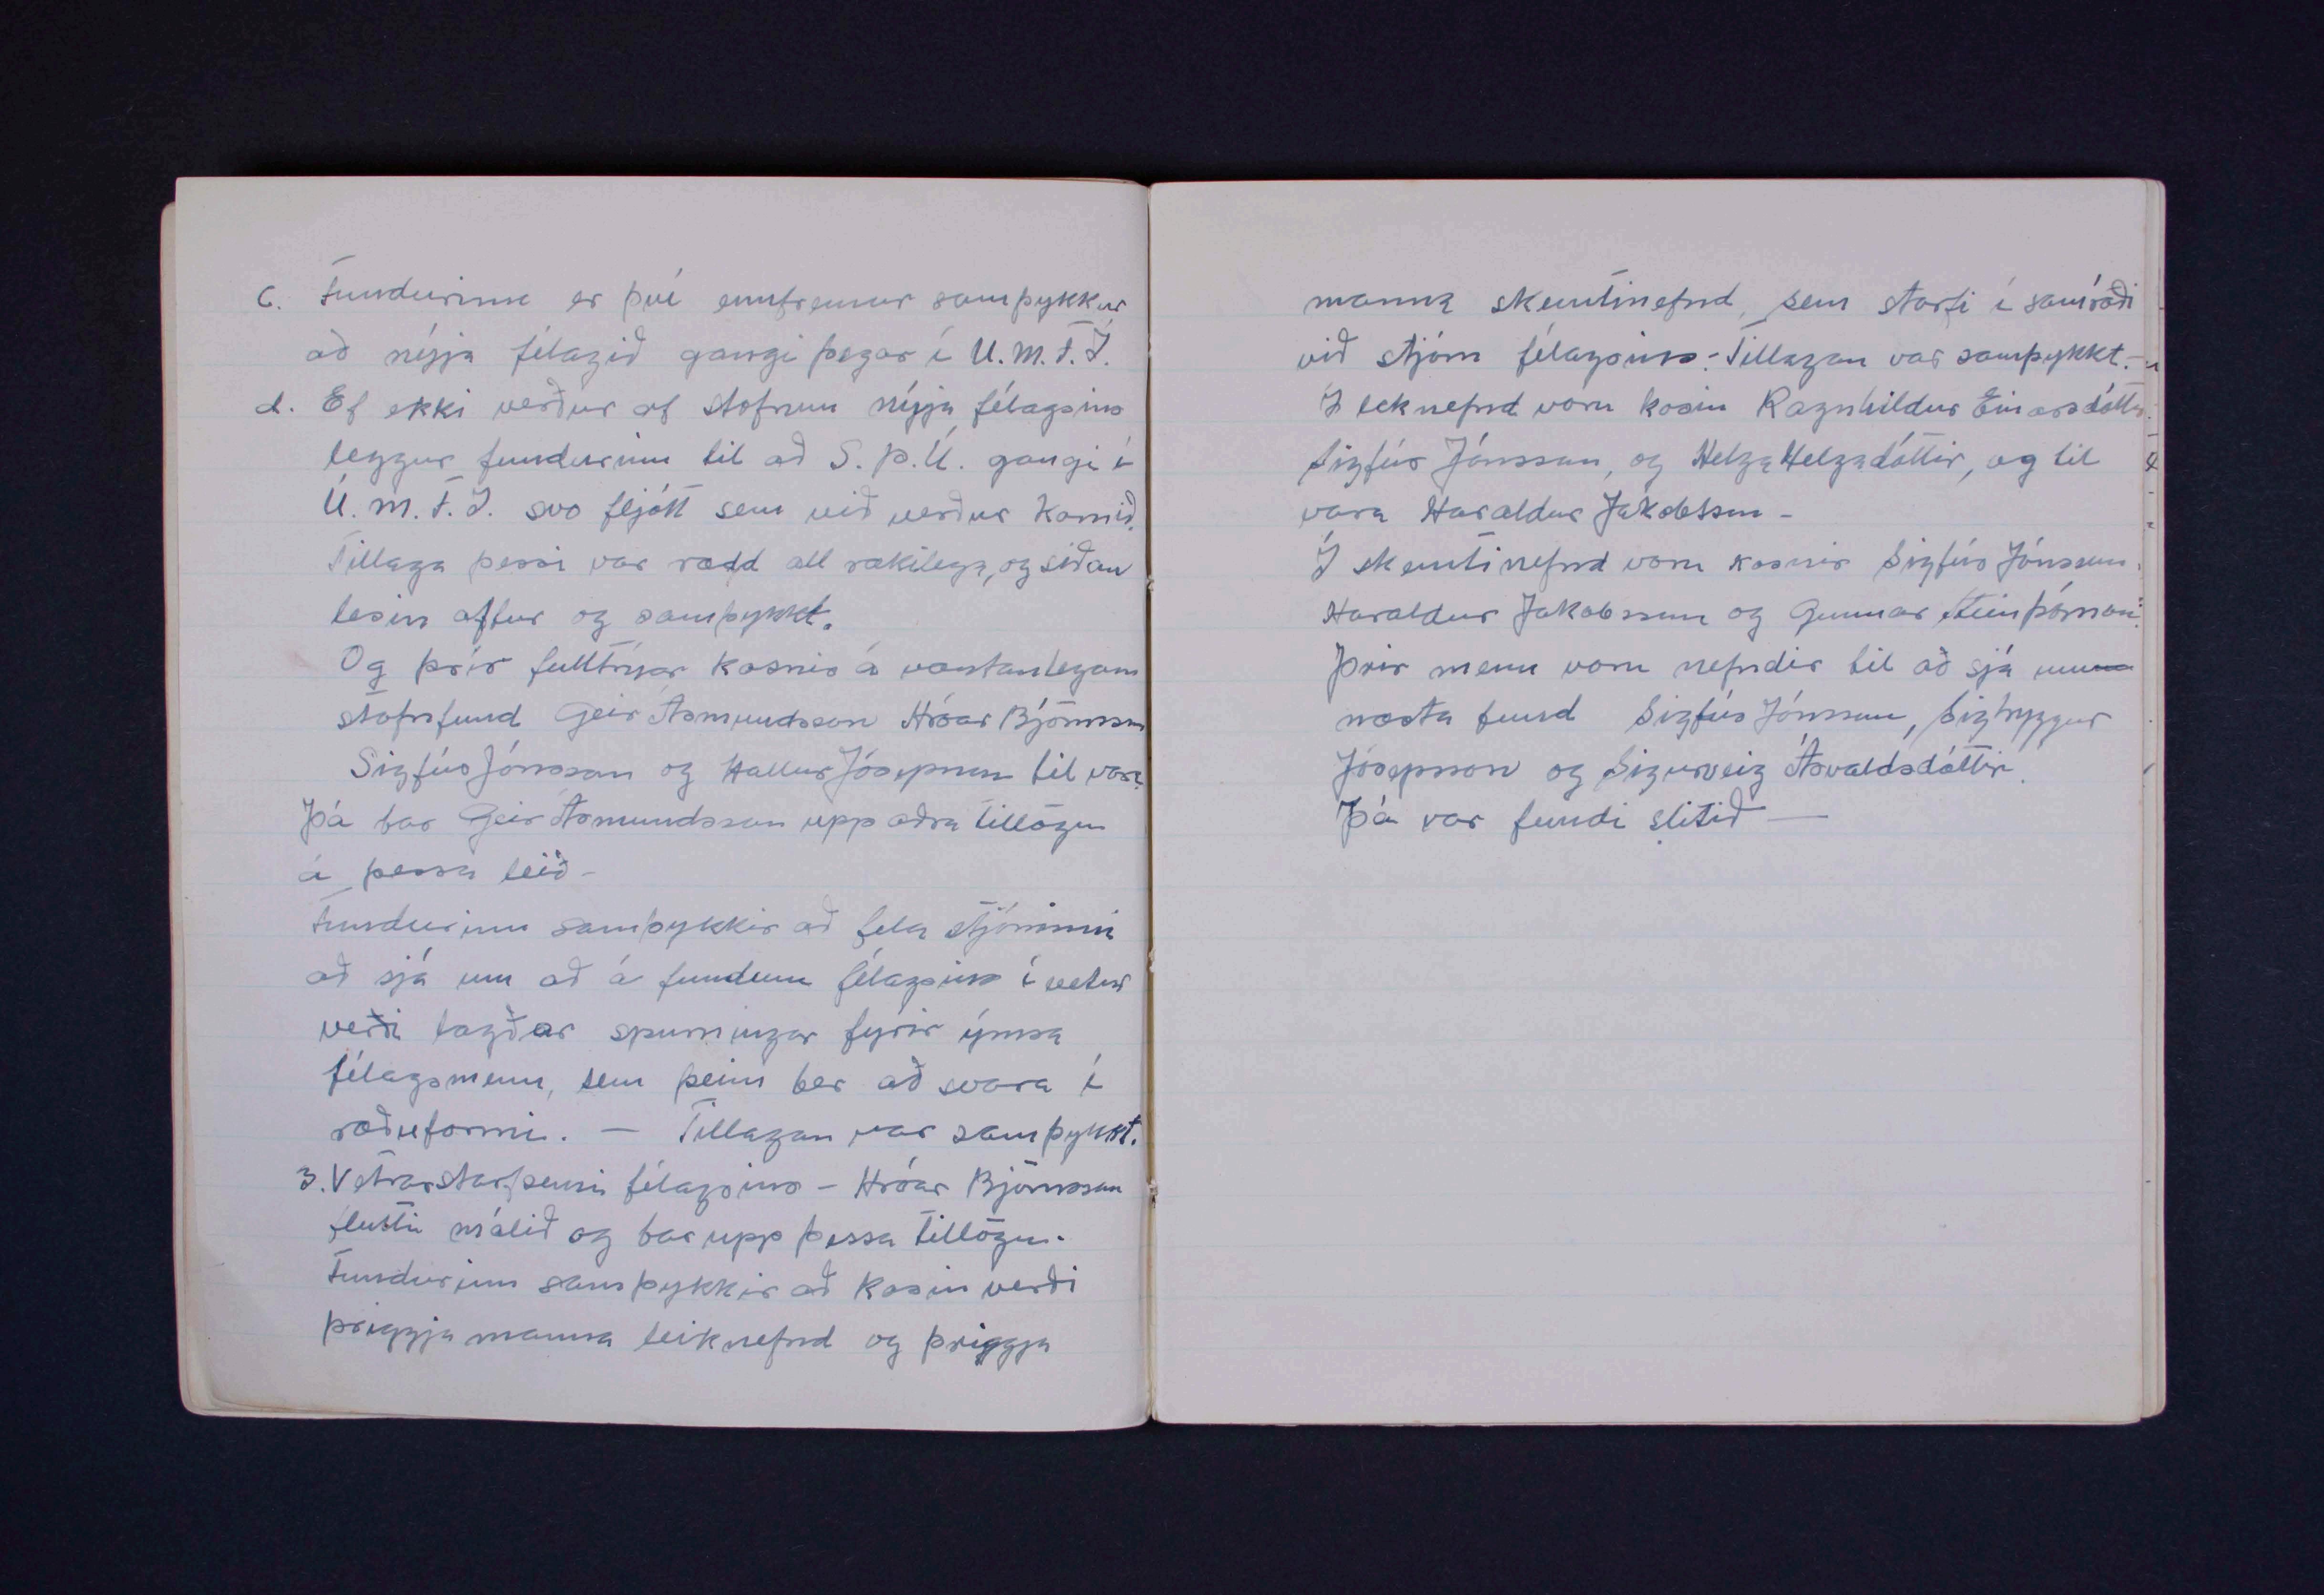 c. Fundurinn er því ennfremur samþykkur
að nýja félagið gangi þegar í U.M.F.Í.
d. Ef ekki verður af stofnun nýja félagsins
leggur fundurinn til að S.Þ.U. gangi í
U.M.F.I. svo fljótt sem við verður komið.
Tillaga þessi var rædd all rækilega, og síðan
lesin aftur og samþykkt.
Og þrír fulltrúar kosnir á væntanlegam
stofnfund Geir Ásmundsson Hróar Björnsson
Sigfús Jónsson og Hallur Jósepsson til vara.
Þá bar Geir Ásmundsson upp aðra tillögu
á þessa leið-
Fundurinn samþykkir að fela stjórninni
að sjá um að á fundum félagsins í vetur
verði lagðar spurningar fyrir ýmsa
félagsmenn, sem þeim ber að svara í
ræðuformi. — Tillagan var samþykkt.
3. Vetrarstarfsemi félagsins - Hróar Björnsson
flutti málið og bar upp þessa tillögu.
Fundurinn samþykkir að kosin verði
þriggja manna leiknefnd og þriggja
manna skemtinefnd, sem starfi í samráði
við stjórn félagsins.- Tillagan var samþykkt.-
Í leknefnd voru kosin Ragnhildur Einarsdóttir
Sigfús Jónsson, og Helga Helgadóttir, og til
vara Haraldur Jakobsson -
Í skemtinefnd voru kosnir Sigfús Jónsson.
Haraldur Jakobsson og Gunnar Steinþórsson.
Þrír menn voru nefndir til að sjá um
næsta fund Sigfús Jónsson, Sigtryggur
Jósepsson og Sigurveig Ásvaldsdóttir.
Þá var fundi slitið —